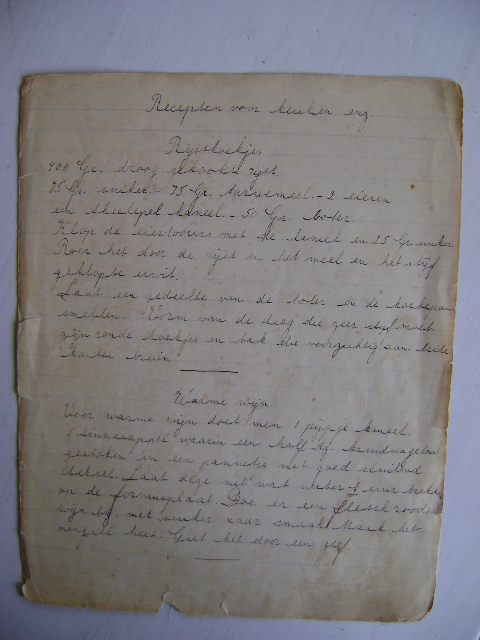 Recepten voor keuken enz.
Rijstkoekjes
400 Gr. droog gekookte rijst
75 Gr. suiker. 75 Gr. tarwemeel. - 2 eieren
en theelepel kaneel. - 50 Gr. boter.
Klop de eierdooiers met de kaneel en 25 Gr. suiker
Roer het door de rijst en het meel en het stijf
geklopte eiwit.
Laat een gedeelte van de boter in de koekepan
smelten. Vorm van de deeg die zeer stijf moet
zijn ronde koekjes en bak die voorzichtig aan beide
kanten bruin
Warme wijn
Voor warme wijn doet men 1 pijpje kaneel.
1 sinaasapple waarin een half dz. kruidnagelen
gestoken in een pannetje met goed sluitend
deksel. Laat deze met wat water 1 uur trekken
op de fornuisplaat. Doe er een flesch roode
wijn bij, met suiker naar smaak Maak het
mengsel heet. Giet het door een zeef.